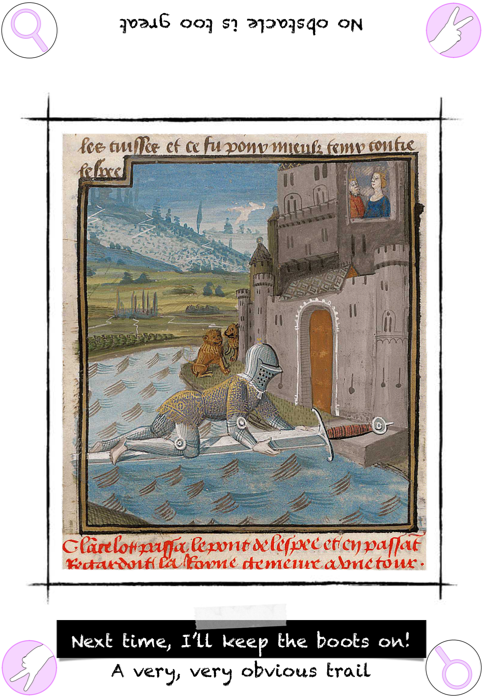 No obstacle is too great
les cuisses et ce fu pour mieulx tenir contre
lespee
Cy lancelot passa le pont de lespee et en passāt
Regardoit la Royne gemeure a vne tour.
Next time, I'll keep the boots on!
A very, very obvious trail